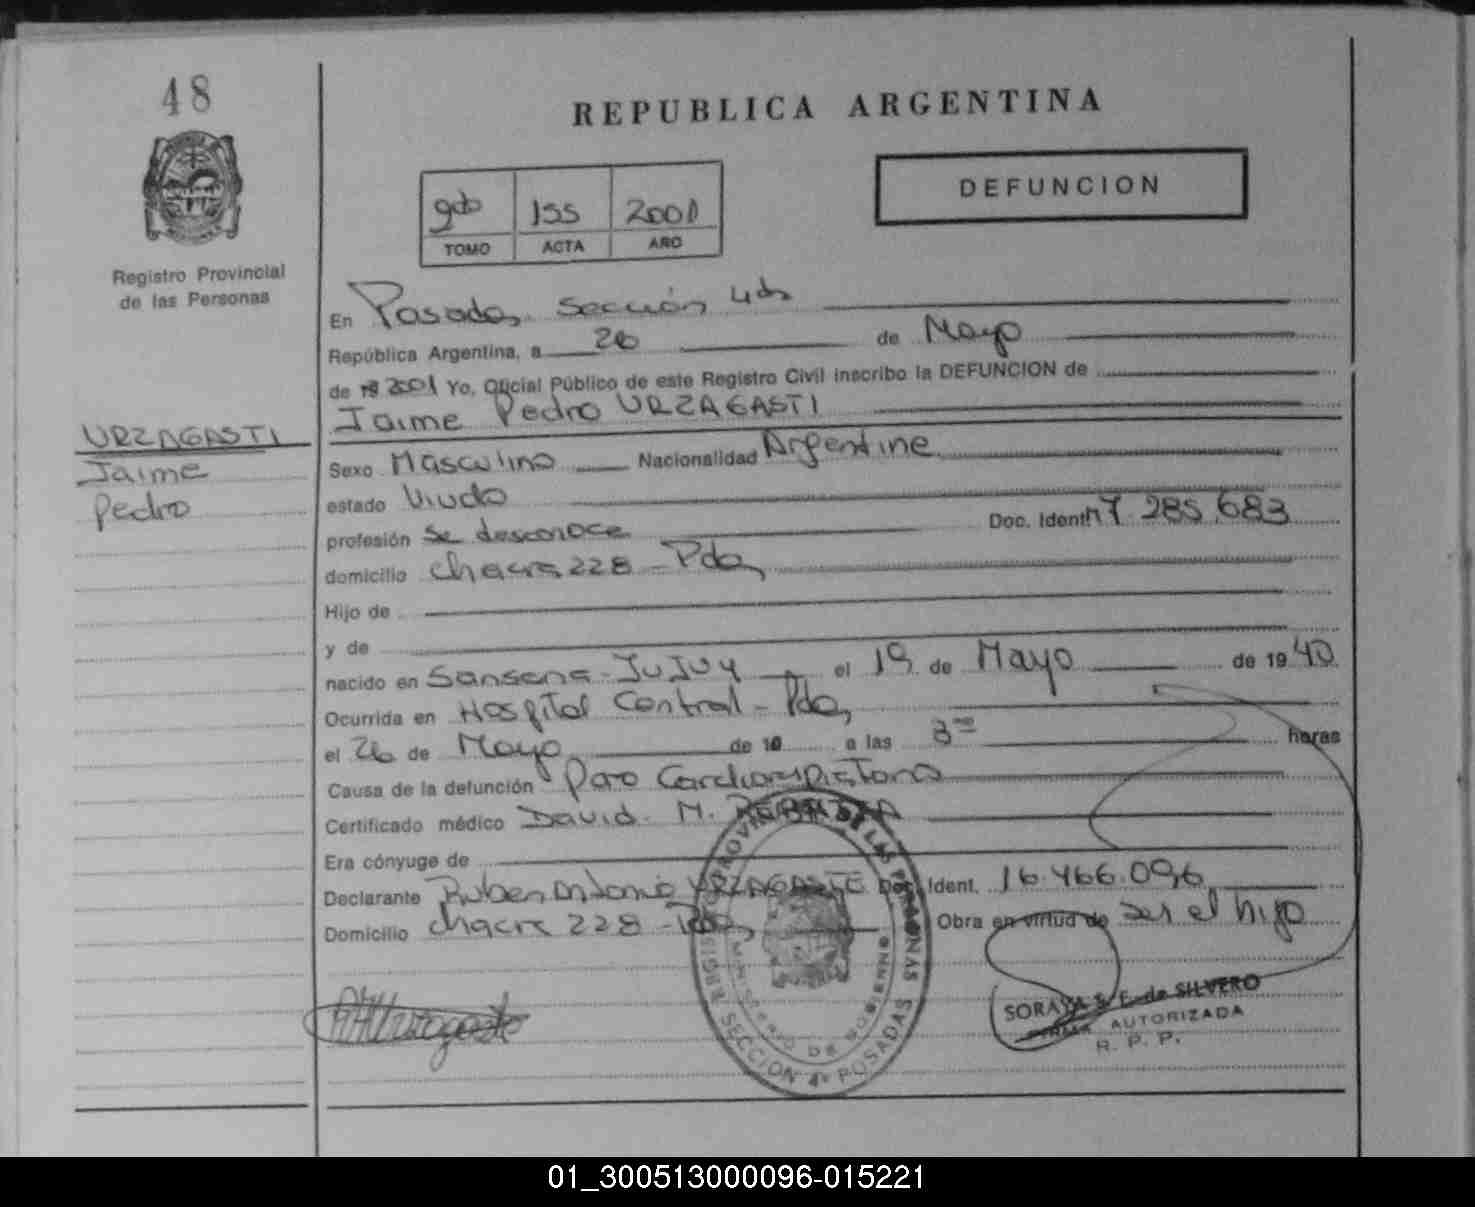 48
REPUBLICA ARGENTINA
DEFUNCION
2do 155 2001
TOMO ACTA AÑO
Registro Provincial
de las Personas
En Posadas, Sección 4ta
República Argentina, a 26 de Mayo
de 19 2001 Yo, Oficial Público de este Registro Civil inscribo la DEFUNCION de
Jaime Pedro URZAGASTI
URZAGASTI
Jaime
Pedro
Sexo Masculino Nacionalidad Argentine
estado Viudo
profesión se desconoce Doc. Ident. M 7.285.683
domicilio chacra 228 - Pdas,
Hijo de
y de
nacido en Sansana - JUJUY el 19 de Mayo de 19 40
Ocurrida en Hospital Central - Pdas,
el 26 de Mayo de 19 a las 3 horas
Causa de la defunción Paro Cardiorespiratorio
Certificado médico David M.
Era cónyuge de
Declarante Ruben Antonio URZAGASTI Doc. Ident. 16.466.096
Domicilio chacra 228 - Pdas, Obra en virtud de ser el hijo
REGISTRO PROVINCIAL DE LAS PERSONAS
MINISTERIO DE GOBIERNO
SECCION 4ª POSADAS
SORAYA S. F. de SILVERO
FIRMA AUTORIZADA
R. P. P.
01_300513000096-015221